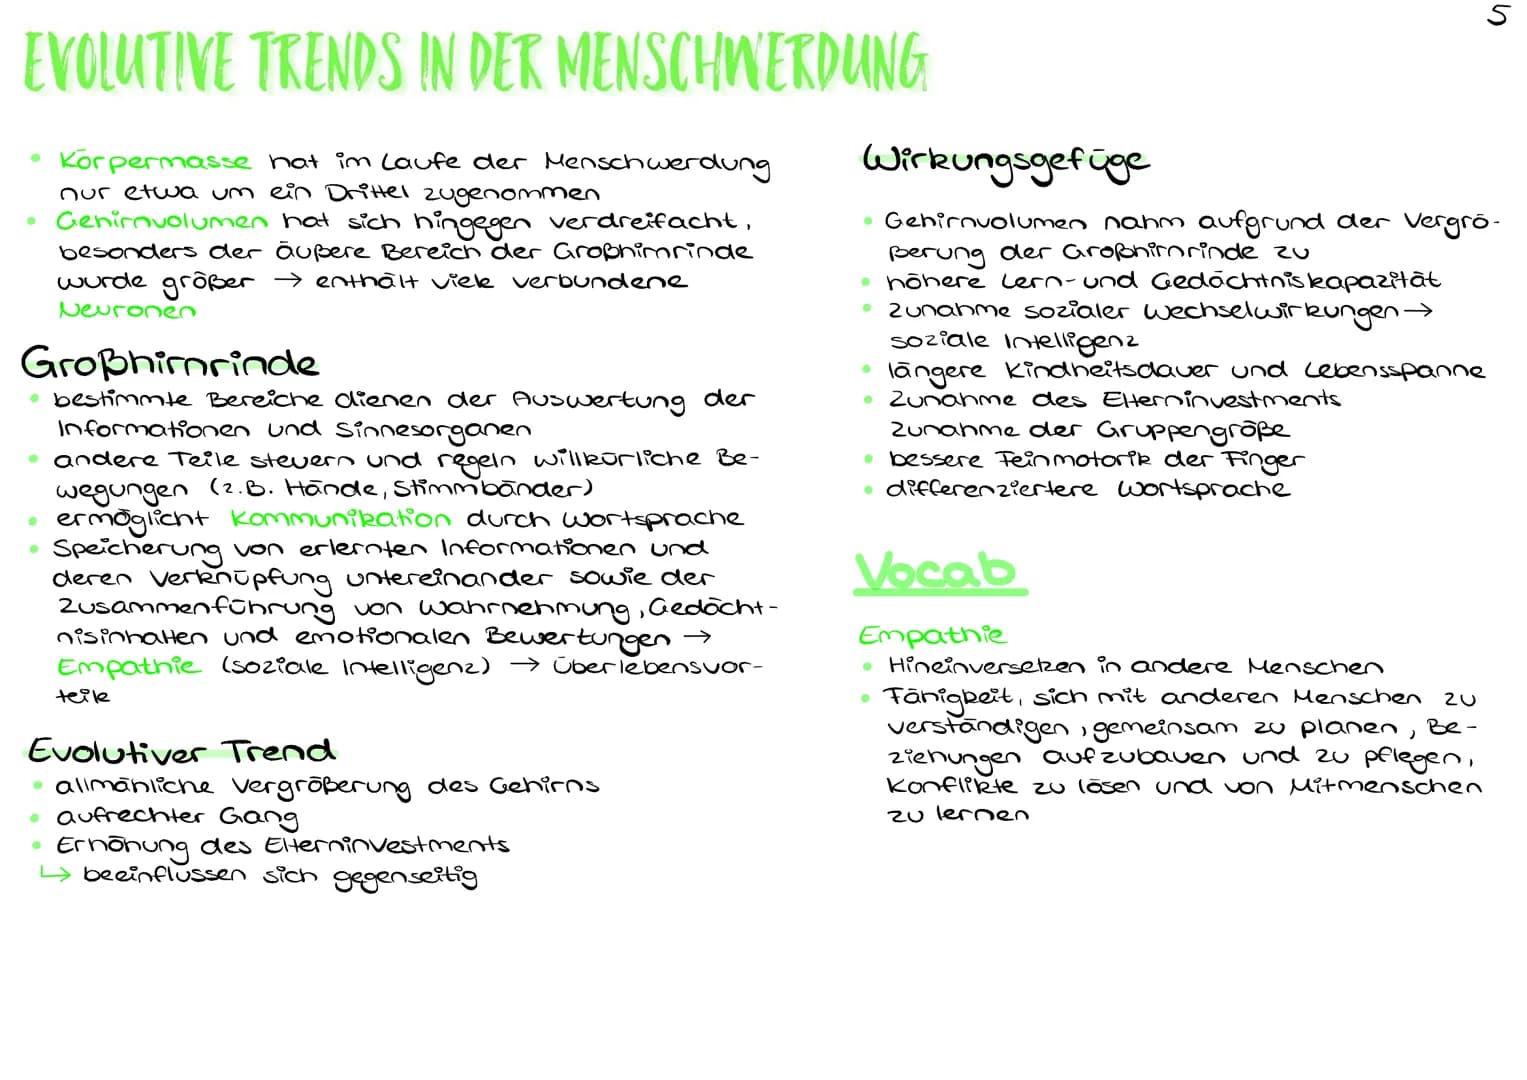 5
EVOLUTIVE TRENDS IN DER MENSCHWERDUNG
• Körpermasse hat im Laufe der Menschwerdung
nur etwa um ein Drittel zugenommen
• Gehirnvolumen hat sich hingegen verdreifacht,
besonders der äußere Bereich der Großhirnrinde
wurde größer → enthält viele verbundene
Neuronen
Großhirnrinde
• bestimmte Bereiche dienen der Auswertung der
Informationen und Sinnesorganen
• andere Teile steuern und regeln willkürliche Be-
wegungen (z.B. Hände, Stimmbänder)
• ermöglicht Kommunikation durch Wortsprache
• Speicherung von erlernten Informationen und
deren Verknüpfung untereinander sowie der
Zusammenführung von Wahrnehmung, Gedächt-
nisinhalten und emotionalen Bewertungen →
Empathie (soziale Intelligenz) → Überlebensvor-
teile
Evolutiver Trend
• allmähliche Vergrößerung des Gehirns
• aufrechter Gang
• Erhöhung des Elterninvestments
↳ beeinflussen sich gegenseitig
Wirkungsgefüge
• Gehirnvolumen nahm aufgrund der Vergrö-
ßerung der Großhirnrinde zu
• höhere Lern- und Gedächtniskapazität
• Zunahme sozialer Wechselwirkungen →
soziale Intelligenz
• längere Kindheitsdauer und Lebensspanne
• Zunahme des Elterninvestments
Zunahme der Gruppengröße
• bessere Feinmotorik der Finger
• differenziertere Wortsprache
Vocab
Empathie
• Hineinversetzen in andere Menschen
• Fähigkeit, sich mit anderen Menschen zu
verständigen, gemeinsam zu planen, Be-
ziehungen aufzubauen und zu pflegen,
Konflikte zu lösen und von Mitmenschen
zu lernen